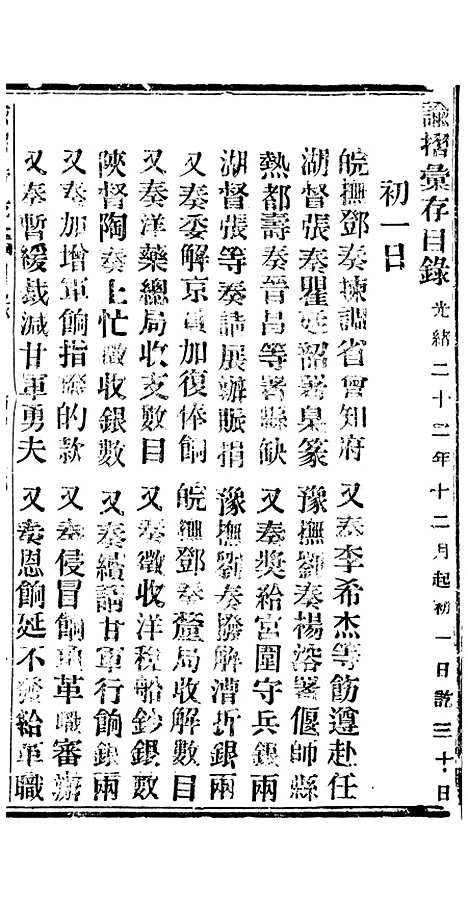 諭摺彙存目錄 光緒二十三年十二月起初一日訖三十日
初一日
皖撫鄧奏揀調省會知府 又奏李希杰等飭遵赴任
湖督張奏瞿廷韶署臬篆 豫撫劉奏楊溶署偃師縣
熱都壽奏晉昌等署縣缺 又奏獎給宮圍守兵銀兩
湖督張等奏請展辦賑捐 豫撫劉奏撥解漕折銀兩
又奏委解京員加復俸餉 皖撫鄧奏釐局收解數目
又奏洋藥總局收支數目 又奏徵收洋稅船鈔銀數
陝督陶奏上忙徵收銀數 又奏續請甘軍行餉銀兩
又奏加增軍餉指撥的款 又奏侵冒餉項革職審辦
又奏暫緩裁減甘軍勇夫 又奏恩餉延不發給革職